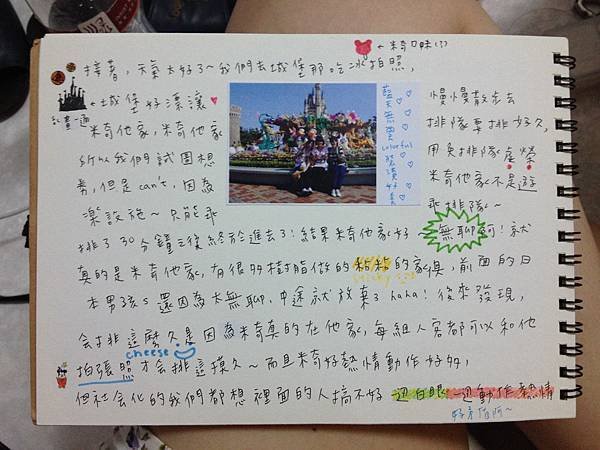 ←米奇口味(?)
接著，天氣太好了~我們去城堡那吃冰拍照，
←城堡好漂讓
藍天無雲
colorful
裝潢
好美
慢慢散步去
米奇他家，米奇他家
排隊要排好久，
所以我們試圖想
用免排隊
券，但是can't，因為
米奇他家不是遊
樂設施~只能乖
乖排隊~
排了30分鐘之後終於進去了！結果米奇他家好無聊啊！就
真的是米奇他家，有很多樹脂做的黏黏的家俱，前面的日
sticky
本男孩s還因為太無聊，中途就放棄了haha！後來發現，
會排這麼久是因為米奇真的在他家，每組人客都可以和他
cheese
拍張照才會排這摸久~而且米奇好熱情動作好多，
但社会化的我們都想裡面的人搞不好一边白眼一边動作熱情